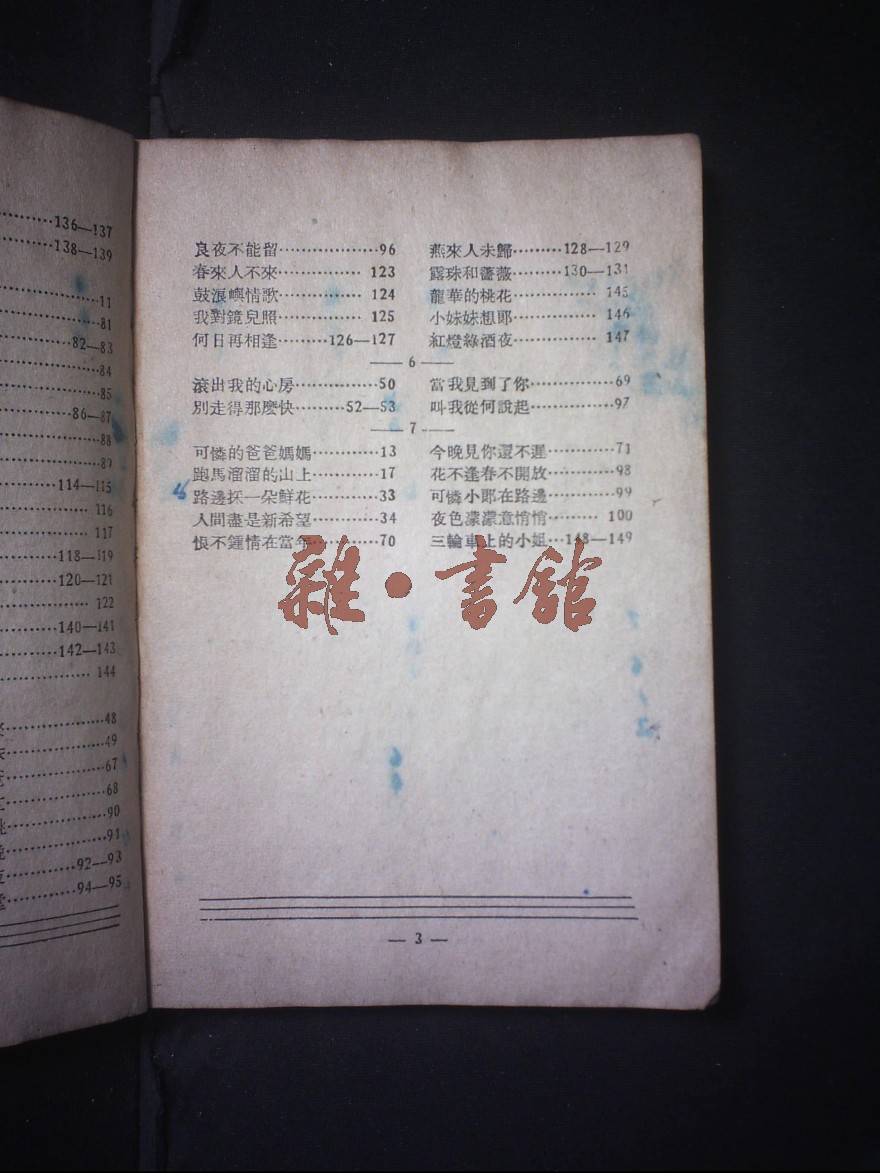 ………136—137
………138—139
………11
………81
………82—83
………84
………85
………86—87
………88
………89
………114—115
………116
………117
………118—119
………120—121
………122
………140—141
………142—143
………144
………48
………49
………67
………68
………90
………91
………92—93
………94—95
良夜不能留………………96 燕來人未歸………128—129
春來人不來…………… 123 露珠和薔薇………130—131
鼓浪嶼情歌…………… 124 龍華的桃花…………… 145
我對鏡兒照…………… 125 小妹妹想郎…………… 146
何日再相逢………126—127 紅燈綠酒夜…………… 147
—— 6 ——
滾出我的心房……………50 當我見到了你……………69
別走得那麽快………52—53 叫我從何說起……………97
—— 7 ——
可憐的爸爸媽媽…………13 今晚見你還不遲…………71
跑馬溜溜的山上…………17 花不逢春不開放…………98
路邊採一朵鮮花…………33 可憐小郎在路邊…………99
人間盡是新希望…………34 夜色濛濛意悄悄……… 100
恨不鍾情在當年…………70 三輪車上的小姐…148—149
雜·書館
— 3 —